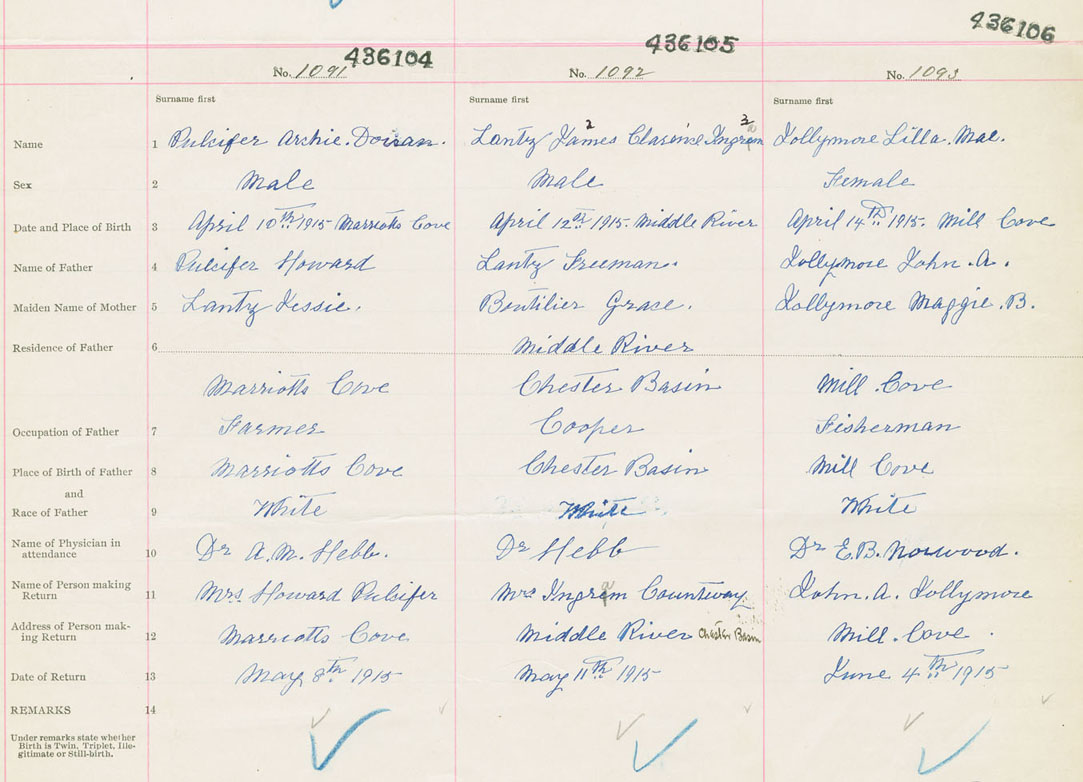 436104 436105 436106
No. 1091 No. 1092 No. 1093
Surname first Surname first Surname first
2 3
Name 1 Pulsifer Archie. Doiran. Lantz James Clarence Ingram Jollymore Lilla. Mae.
Sex 2 Male Male Female
Date and Place of Birth 3 April 10th 1915 Marriotts Cove April 12th 1915. Middle River April 14th 1915. Mill Cove
Name of Father 4 Pulsifer Howard Lantz Freeman. Jollymore John. A.
Maiden Name of Mother 5 Lantz Jessie. Boutilier Grace. Jollymore Maggie. B.
Residence of Father 6 Middle River
Marriotts Cove Chester Basin Mill Cove
Occupation of Father 7 Farmer Cooper Fisherman
Place of Birth of Father 8 Marriotts Cove Chester Basin Mill Cove
and
Race of Father 9 White White White
Name of Physician in
attendance 10 Dr A. M. Hebb. Dr Hebb Dr E. B. Norwood.
Name of Person making
Return 11 Mrs Howard Pulsifer Mrs Ingram Countway John. A. Jollymore
Address of Person mak-
ing Return 12 Marriotts Cove Middle River Chester Basin Mill. Cove.
Date of Return 13 May 8th 1915 May 11th 1915 June 4th 1915
REMARKS 14
Under remarks state whether
Birth is Twin, Triplet, Ille-
gitimate or Still-birth.